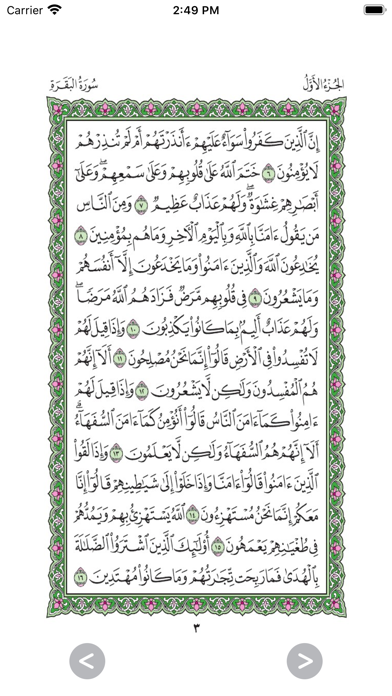 Carrier 2:49 PM
سُورَةُ البَقَرَةِ الجُزْءُ الأَوَّلُ
إِنَّ ٱلَّذِينَ كَفَرُوا۟ سَوَآءٌ عَلَيْهِمْ ءَأَنذَرْتَهُمْ أَمْ لَمْ تُنذِرْهُمْ
لَا يُؤْمِنُونَ ٦ خَتَمَ ٱللَّهُ عَلَىٰ قُلُوبِهِمْ وَعَلَىٰ سَمْعِهِمْ ۖ وَعَلَىٰٓ
أَبْصَٰرِهِمْ غِشَٰوَةٌ ۖ وَلَهُمْ عَذَابٌ عَظِيمٌ ٧ وَمِنَ ٱلنَّاسِ
مَن يَقُولُ ءَامَنَّا بِٱللَّهِ وَبِٱلْيَوْمِ ٱلْءَاخِرِ وَمَا هُم بِمُؤْمِنِينَ ٨
يُخَٰدِعُونَ ٱللَّهَ وَٱلَّذِينَ ءَامَنُوا۟ وَمَا يَخْدَعُونَ إِلَّآ أَنفُسَهُمْ
وَمَا يَشْعُرُونَ ٩ فِى قُلُوبِهِم مَّرَضٌ فَزَادَهُمُ ٱللَّهُ مَرَضًا ۖ
وَلَهُمْ عَذَابٌ أَلِيمٌۢ بِمَا كَانُوا۟ يَكْذِبُونَ ١٠ وَإِذَا قِيلَ لَهُمْ
لَا تُفْسِدُوا۟ فِى ٱلْأَرْضِ قَالُوٓا۟ إِنَّمَا نَحْنُ مُصْلِحُونَ ١١ أَلَآ إِنَّهُمْ
هُمُ ٱلْمُفْسِدُونَ وَلَٰكِن لَّا يَشْعُرُونَ ١٢ وَإِذَا قِيلَ لَهُمْ
ءَامِنُوا۟ كَمَآ ءَامَنَ ٱلنَّاسُ قَالُوٓا۟ أَنُؤْمِنُ كَمَآ ءَامَنَ ٱلسُّفَهَآءُ ۗ
أَلَآ إِنَّهُمْ هُمُ ٱلسُّفَهَآءُ وَلَٰكِن لَّا يَعْلَمُونَ ١٣ وَإِذَا لَقُوا۟
ٱلَّذِينَ ءَامَنُوا۟ قَالُوٓا۟ ءَامَنَّا وَإِذَا خَلَوْا۟ إِلَىٰ شَيَٰطِينِهِمْ قَالُوٓا۟ إِنَّا
مَعَكُمْ إِنَّمَا نَحْنُ مُسْتَهْزِءُونَ ١٤ ٱللَّهُ يَسْتَهْزِئُ بِهِمْ وَيَمُدُّهُمْ
فِى طُغْيَٰنِهِمْ يَعْمَهُونَ ١٥ أُو۟لَٰٓئِكَ ٱلَّذِينَ ٱشْتَرَوُا۟ ٱلضَّلَٰلَةَ
بِٱلْهُدَىٰ فَمَا رَبِحَت تِّجَٰرَتُهُمْ وَمَا كَانُوا۟ مُهْتَدِينَ ١٦
٣
< >